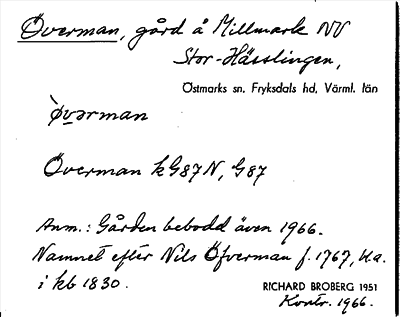 Överman, gård å Millmark NV
Stor-Hässlingen,
Östmarks sn. Fryksdals hd, Värml. län
`øvərman
Överman kG87N, G87
Anm.: Gården bebodd även 1966.
Namnet efter Nils Öfverman f. 1767, ua.
i kb 1830.
RICHARD BROBERG 1951
Kontr. 1966.